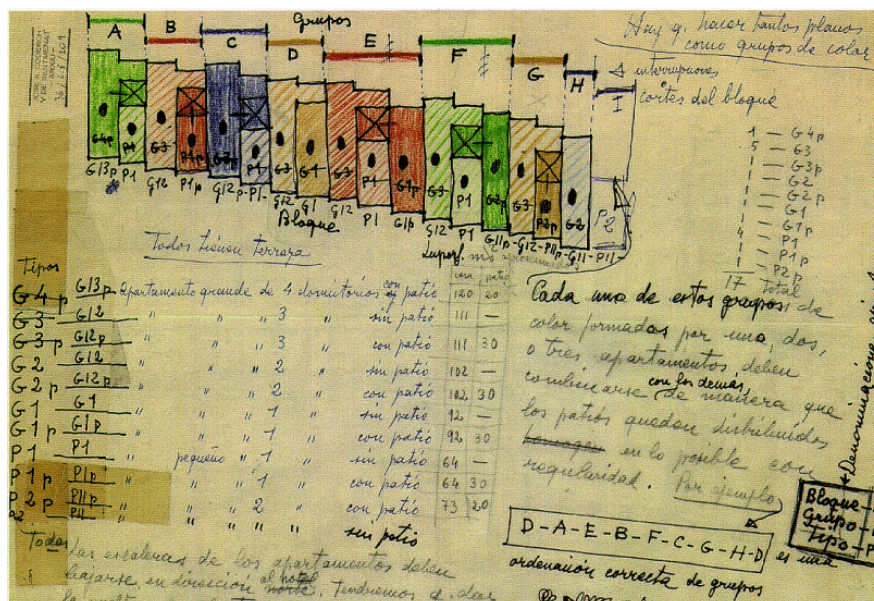 Grupos
A B C D E F G H
Hay q. hacer tantos planos
como grupos de color
interrupciones
I cortes del bloque
JOSE A. CODERCH
Y DE SENTMENAT
G4p P1 G3 P1p G3p P1 G3 G1 G3 P1 G1p G3 P1 G2p G3 P2p G2 P2
G13p P1 G12 P1p G12 p-P1- G12 G1 G12 P1 G1p G12 P1 G11p -G12-P11p -G11-P11-
Bloque
1 — G4p
5 — G3
1 — G3p
1 — G2
1 — G2p
1 — G1
1 — G1p
4 — P1
1 — P1p
1 — P2p
17 Total
Todos tienen terraza
Superf. m/s aproximados
Tipos
G4p G13p apartamento grande de 4 dormitorios con patio 120 20
G3 G12 " " " 3 " sin patio 111 —
G3p G12p " " " 3 " con patio 111 30
G2 G12 " " " 2 " sin patio 102 —
G2p G12p " " " 2 " con patio 102 30
G1 G1 " " " 1 " sin patio 92 —
G1p G1p " " " 1 " con patio 92 30
P1 P1 " pequeño " 1 " sin patio 64 —
P1p P1p " " " 1 " con patio 64 30
P2p P11p " " " 2 " con patio 73 20
P2 P11 " " " " " sin patio
Todos
Las escaleras de los apartamentos deben
bajarse en dirección al hotel norte. Tendremos q. dar
Cada uno de estos grupos de
color formados por uno, dos,
o tres apartamentos deben
combinarse con los demás, de manera que
los patios queden distribuidos
en lo posible con
regularidad. Por ejemplo
D-A-E-B-F-C-G-H-D es una
ordenación correcta de grupos
Denominaciones
Bloque -
Grupo -
Tipo - P